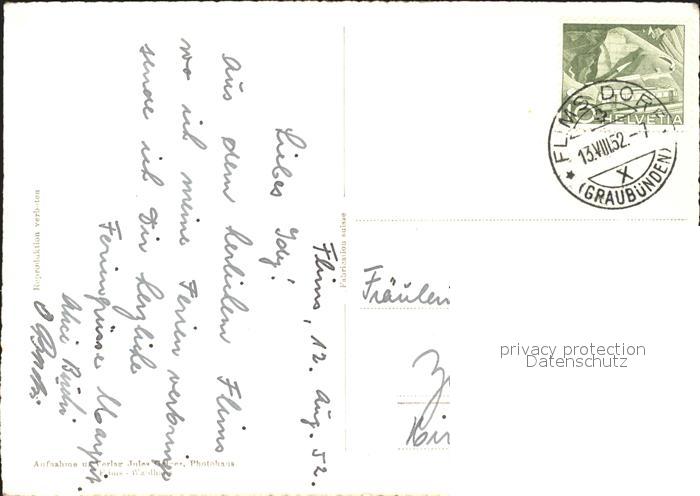 Flims, 12. Aug. 52.
Liebes Idy!
Aus dem herlichem Flims
wo ich meine Ferien verbringe
sende ich Dir herzliche
Feriengrüsse Margrit.
Alice
Reproduktion verboten
Aufnahme u. Verlag Jules, Photohaus
Flims - Waldhaus
Fabrication suisse
HELVETIA
FLIMS DORF
13.VIII.52.-7
X
(GRAUBÜNDEN)
Fräulein
privacy protection
Datenschutz